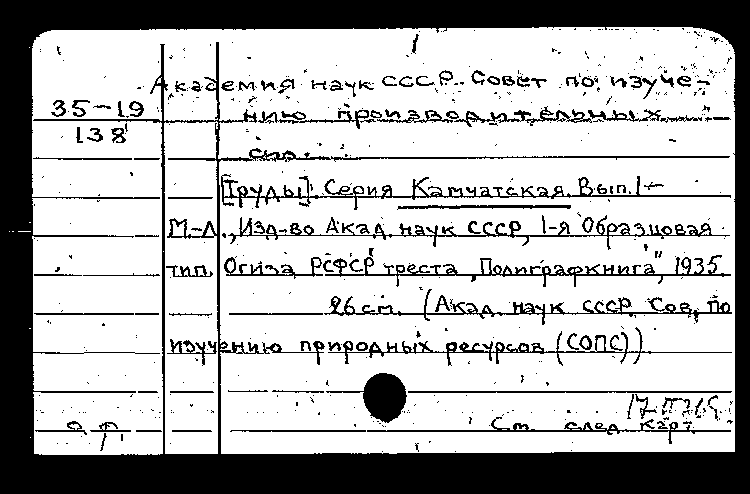 Академия наук СССР. Совет по изуче-
35-19
нию производительных
138
сил.
[Труды]. Серия Камчатская. Вып. 1-
М.-Л., Изд-во Акад. наук СССР, 1-я Образцовая
тип. Огиза РСФСР треста "Полиграфкнига", 1935.
26 см. (Акад. наук СССР. Сов. по
изучению природных ресурсов (СОПС)).
См. след. карт.